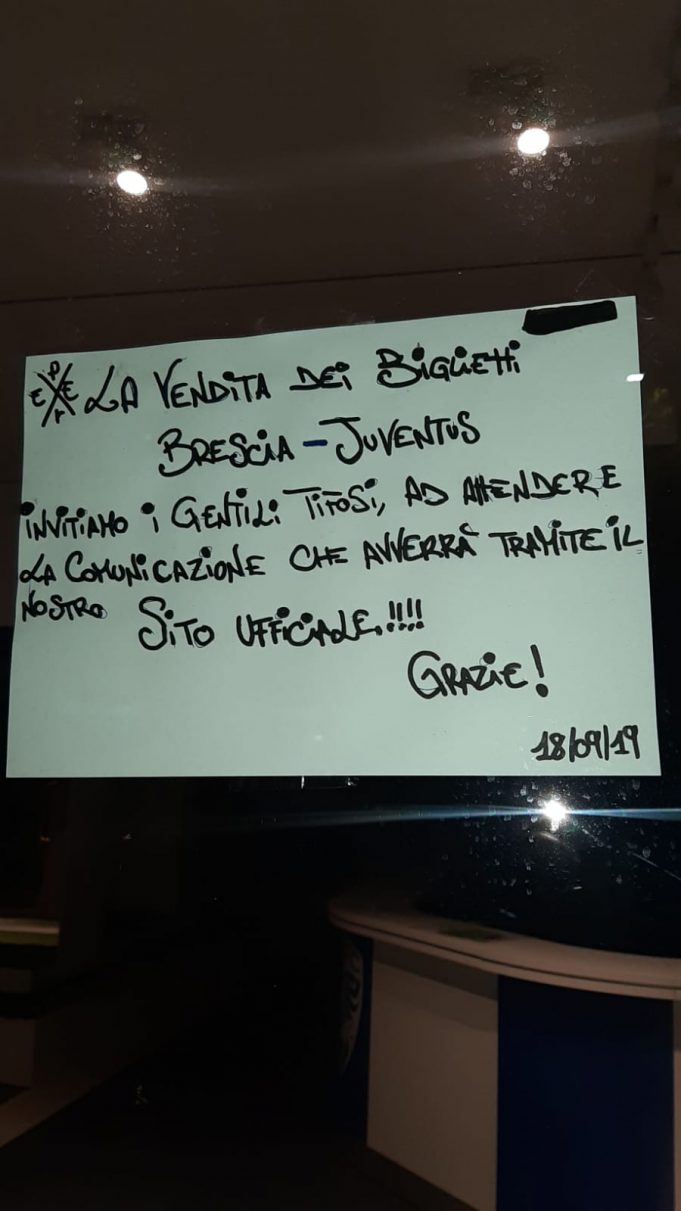 LA VENDITA DEI BIGLIETTI
BRESCIA - JUVENTUS
INVITIAMO I GENTILI TIFOSI, AD ATTENDERE
LA COMUNICAZIONE CHE AVVERRÀ TRAMITE IL
NOSTRO SITO UFFICIALE.!!!!
GRAZIE!
18/09/19